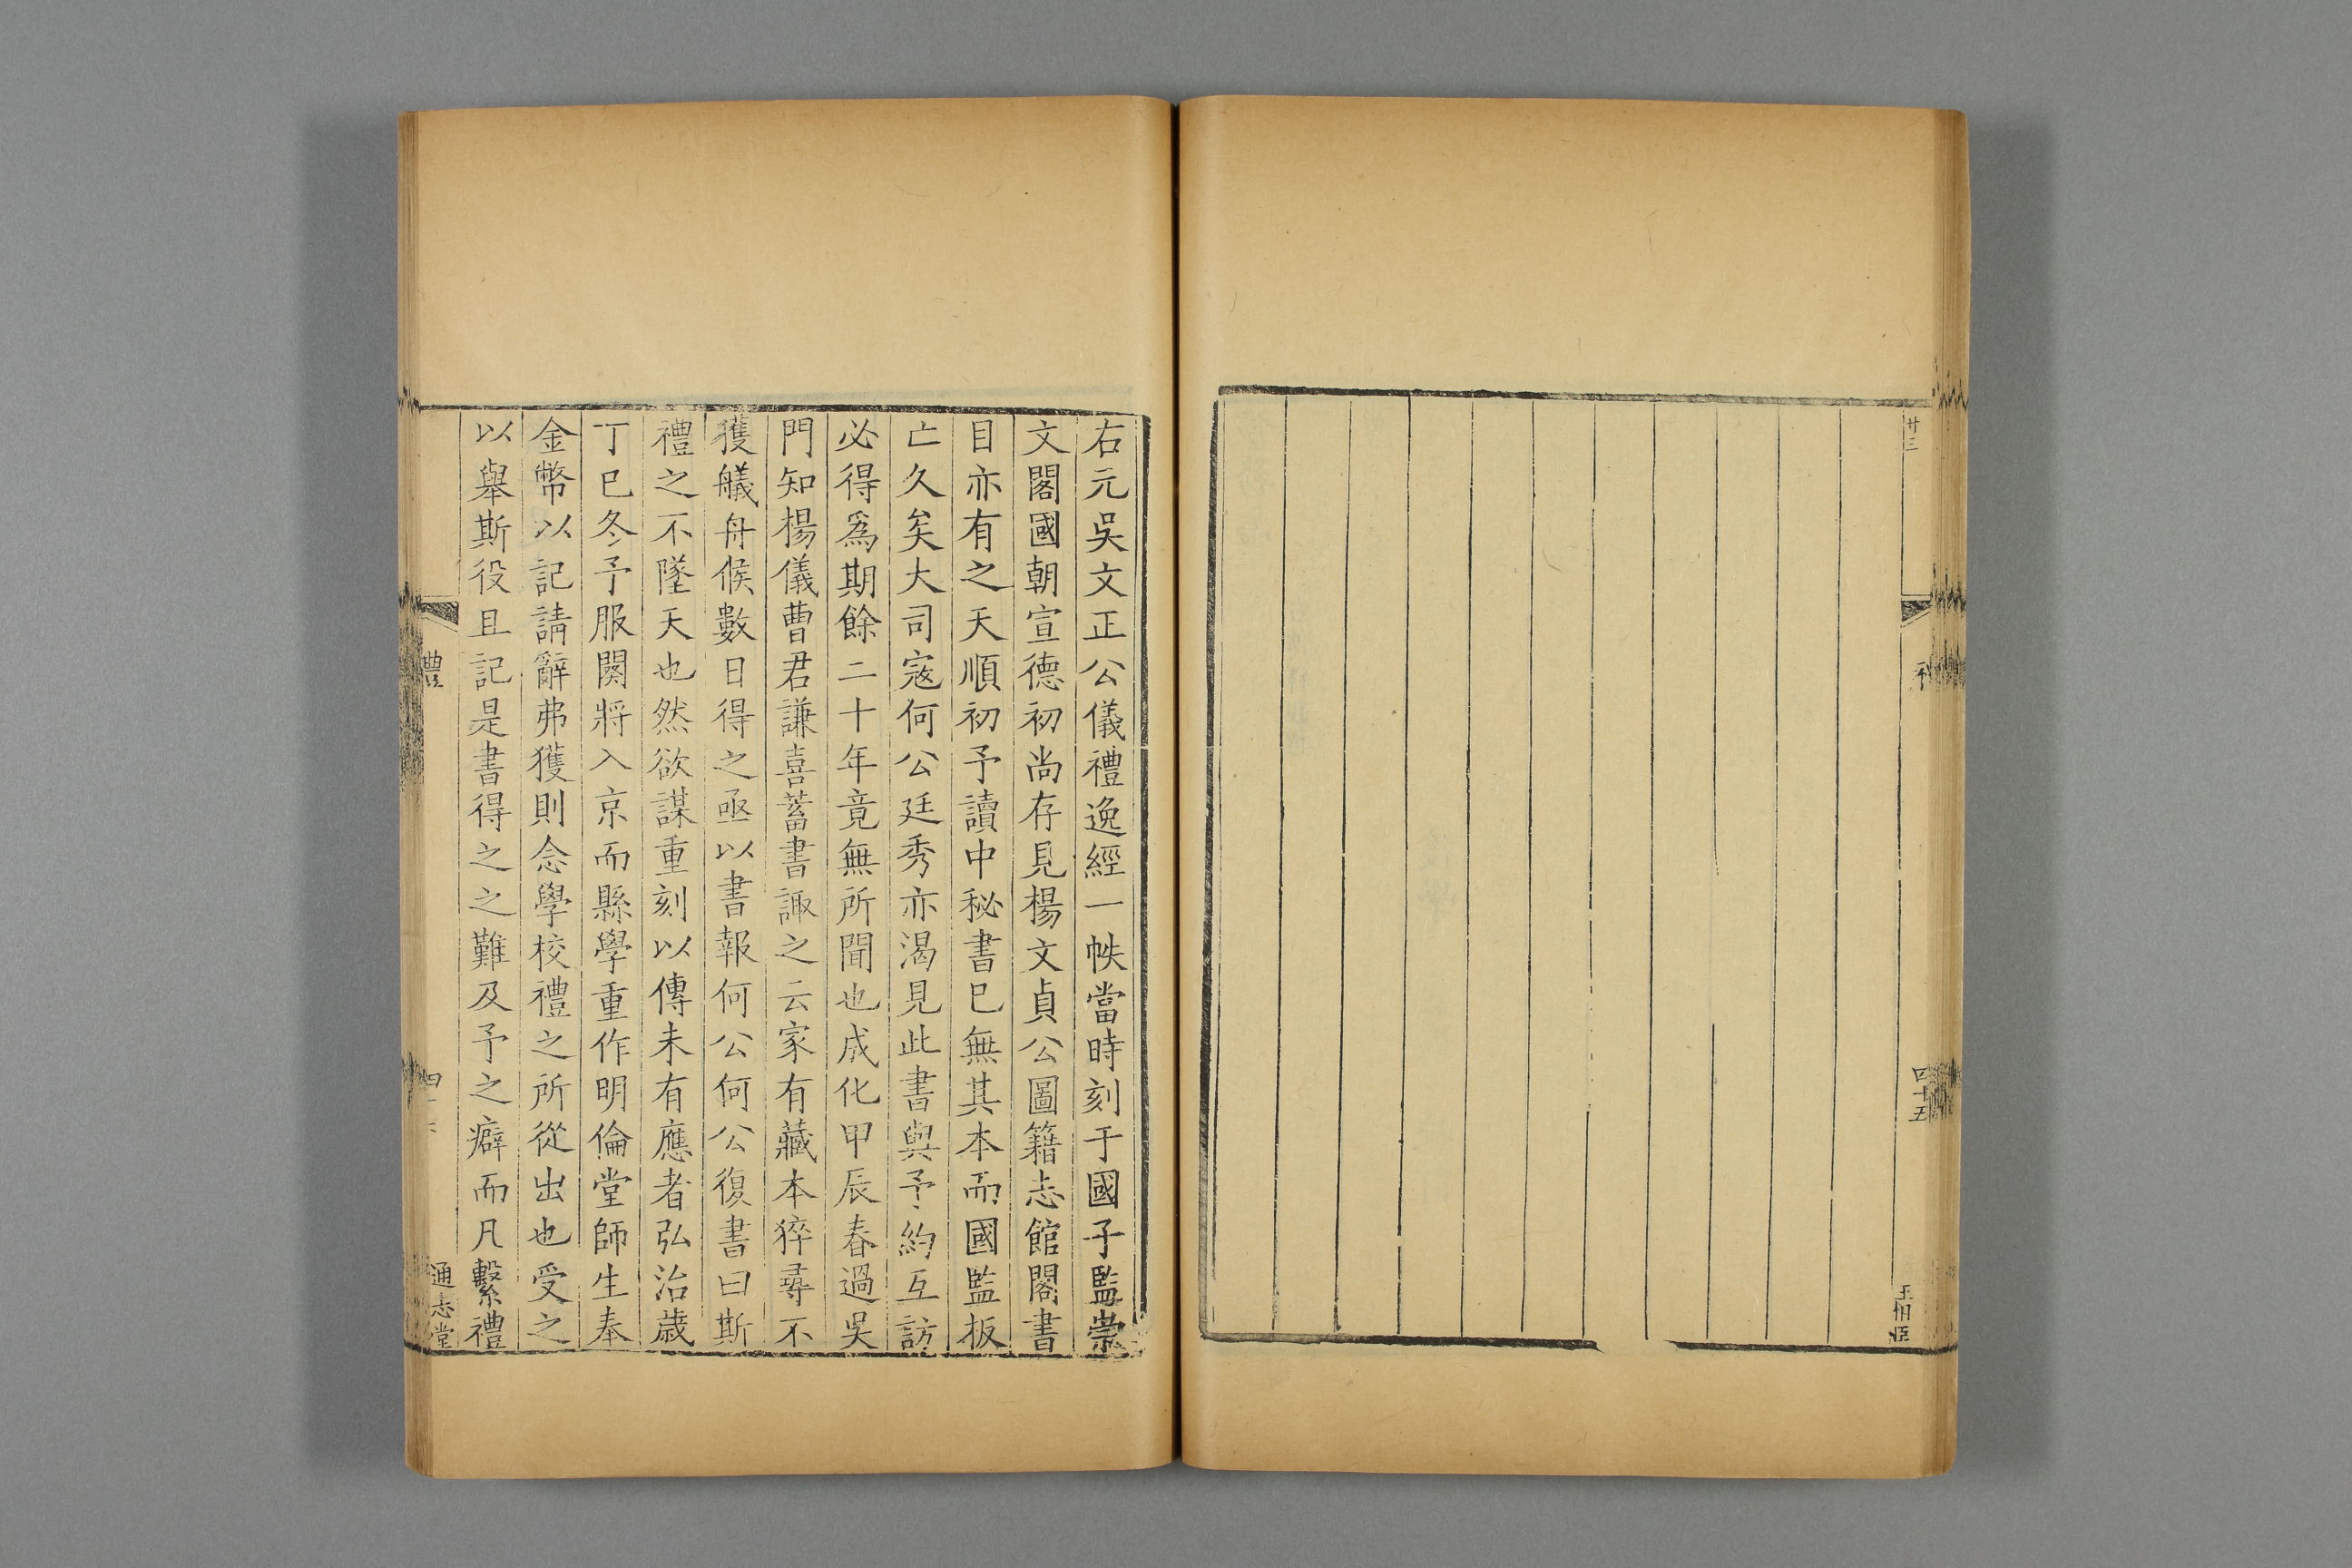 廿三
四十五
右元吳文正公儀禮逸經一帙當時刻于國子監崇
文閣國朝宣德初尚存見楊文貞公圖籍志館閣書
目亦有之天順初予讀中秘書已無其本而國監板
亡久矣大司寇何公廷秀亦渴見此書與予約互訪
必得爲期餘二十年竟無所聞也成化甲辰春過吳
門知楊儀曹君謙喜蓄書諏之云家有藏本猝尋不
獲艤舟候數日得之亟以書報何公何公復書曰斯
禮之不墜天也然欲謀重刻以傳未有應者弘治歲
丁巳冬予服闋將入京而縣學重作明倫堂師生奉
金幣以記請辭弗獲則念學校禮之所從出也受之
以舉斯役且記是書得之之難及予之癖而凡繫禮
禮
通志堂